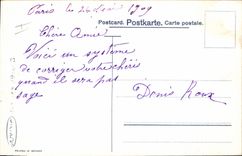 Paris le 1909
Postcard. Postkarte. Carte postale.
Chère Amie
Voici un système
de corriger votre chéri
quand il sera pas
sage
Denis Roux